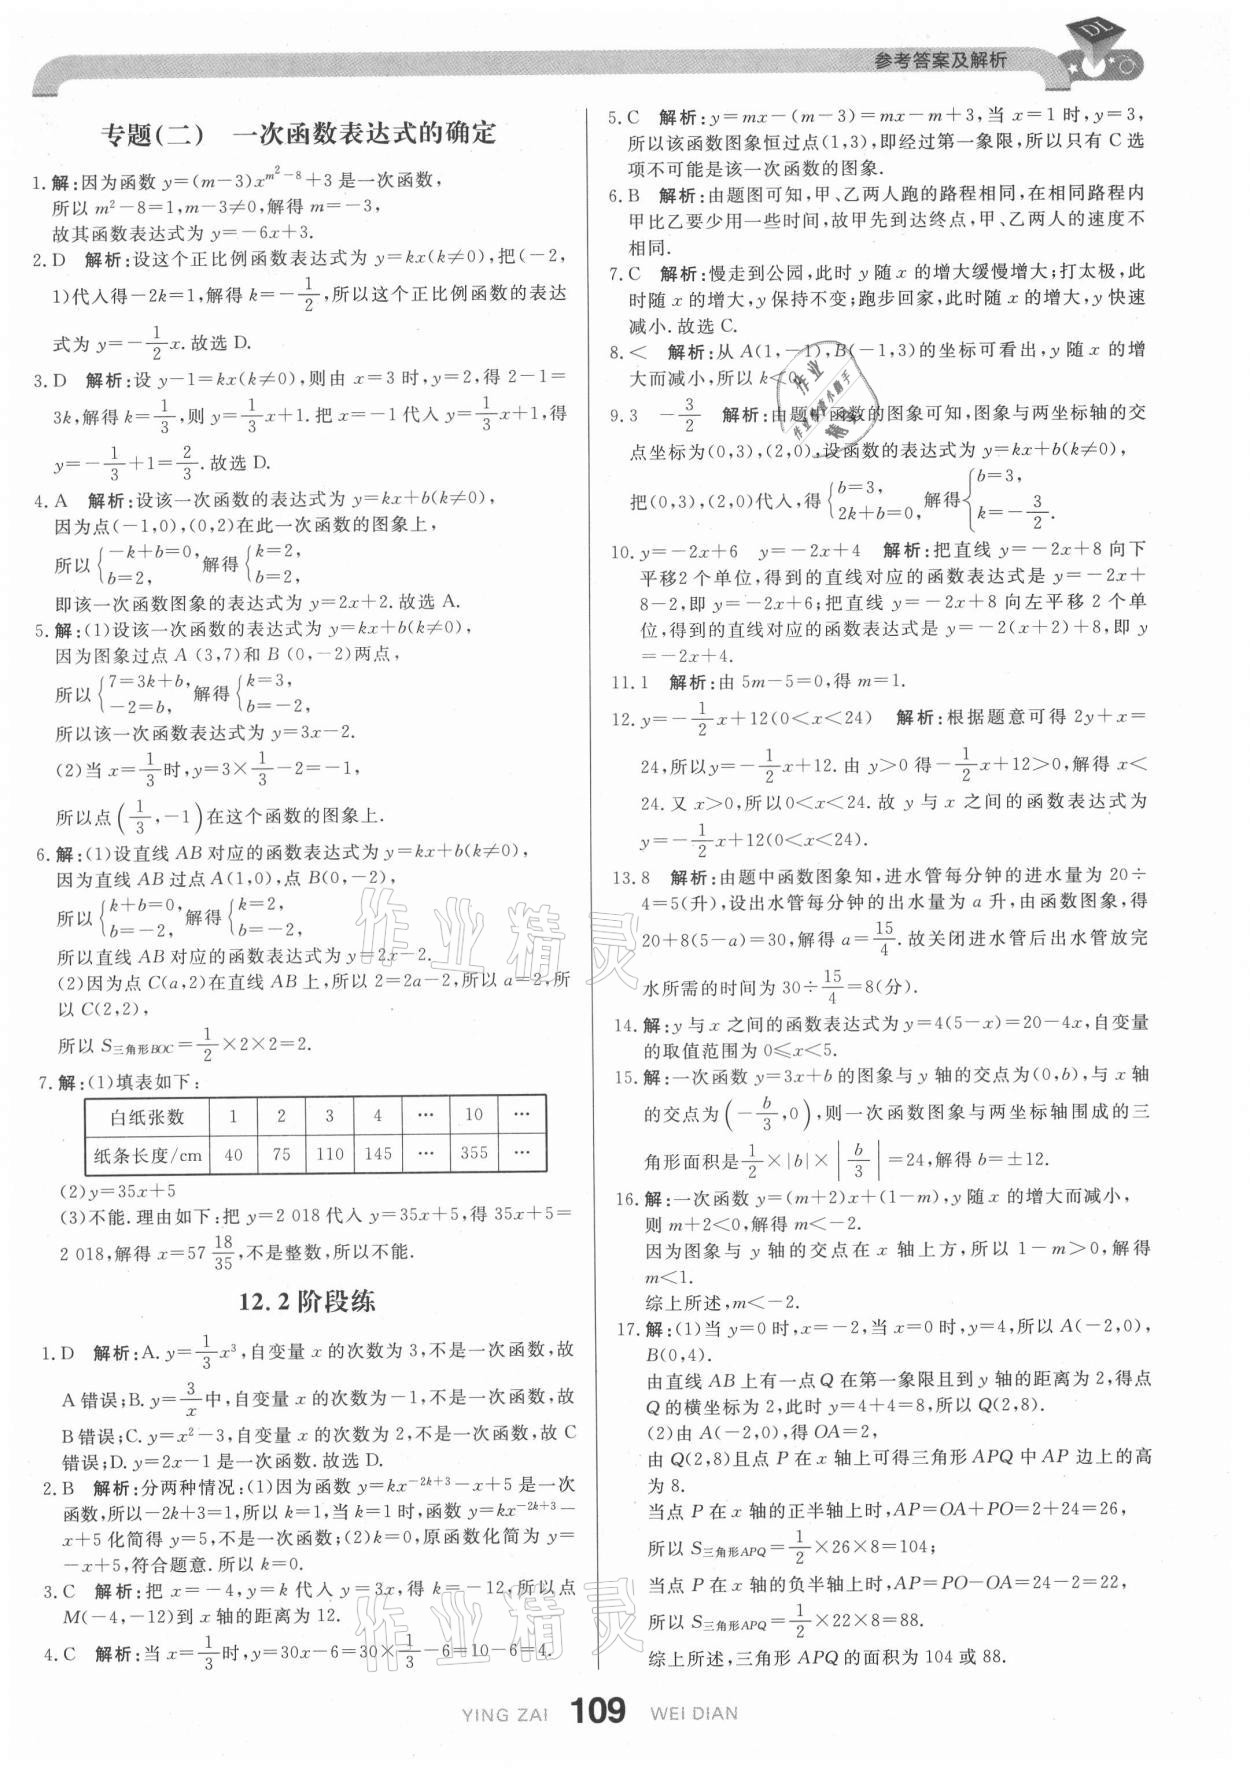 参考答案及解析
DL
专题(二)　一次函数表达式的确定
1.解:因为函数 y=(m-3)x^{m²-8}+3 是一次函数,
所以 m²-8=1,m-3≠0,解得 m=-3,
故其函数表达式为 y=-6x+3.
2.D　解析:设这个正比例函数表达式为 y=kx(k≠0),把(-2,
1)代入得-2k=1,解得 k=-1/2,所以这个正比例函数的表达
式为 y=-1/2x.故选 D.
3.D　解析:设 y-1=kx(k≠0),则由 x=3 时,y=2,得 2-1=
3k,解得 k=1/3,则 y=1/3x+1.把 x=-1 代入 y=1/3x+1,得
y=-1/3+1=2/3.故选 D.
4.A　解析:设该一次函数的表达式为 y=kx+b(k≠0),
因为点(-1,0),(0,2)在此一次函数的图象上,
所以{-k+b=0, b=2,解得{k=2, b=2,
即该一次函数图象的表达式为 y=2x+2.故选 A.
5.解:(1)设该一次函数的表达式为 y=kx+b(k≠0),
因为图象过点 A (3,7)和 B (0,-2)两点,
所以{7=3k+b, -2=b,解得{k=3, b=-2,
所以该一次函数表达式为 y=3x-2.
(2)当 x=1/3时,y=3×1/3-2=-1,
所以点(1/3,-1)在这个函数的图象上.
6.解:(1)设直线 AB 对应的函数表达式为 y=kx+b(k≠0),
因为直线 AB 过点 A(1,0),点 B(0,-2),
所以{k+b=0, b=-2,解得{k=2, b=-2,
所以直线 AB 对应的函数表达式为 y=2x-2.
(2)因为点 C(a,2)在直线 AB 上,所以 2=2a-2,所以 a=2,所
以 C(2,2),
所以 S三角形BOC=1/2×2×2=2.
7.解:(1)填表如下:
白纸张数 1 2 3 4 … 10 …
纸条长度/cm 40 75 110 145 … 355 …
(2)y=35x+5
(3)不能.理由如下:把 y=2 018 代入 y=35x+5,得 35x+5=
2 018,解得 x=57 18/35,不是整数,所以不能.
12.2 阶段练
1.D　解析:A. y=1/3x³,自变量 x 的次数为 3,不是一次函数,故
A 错误;B. y=3/x中,自变量 x 的次数为-1,不是一次函数,故
B 错误;C. y=x²-3,自变量 x 的次数为 2,不是一次函数,故 C
错误;D. y=2x-1 是一次函数.故选 D.
2.B　解析:分两种情况:(1)因为函数 y=kx^{-2k+3}-x+5 是一次
函数,所以-2k+3=1,所以 k=1,当 k=1 时,函数 y=kx^{-2k+3}-
x+5 化简得 y=5,不是一次函数;(2)k=0,原函数化简为 y=
-x+5,符合题意.所以 k=0.
3.C　解析:把 x=-4,y=k 代入 y=3x,得 k=-12,所以点
M(-4,-12)到 x 轴的距离为 12.
4.C　解析:当 x=1/3时,y=30x-6=30×1/3-6=10-6=4.
5.C　解析:y=mx-(m-3)=mx-m+3,当 x=1 时,y=3,
所以该函数图象恒过点(1,3),即经过第一象限,所以只有 C 选
项不可能是该一次函数的图象.
6.B　解析:由题图可知,甲、乙两人跑的路程相同,在相同路程内
甲比乙要少用一些时间,故甲先到达终点,甲、乙两人的速度不
相同.
7.C　解析:慢走到公园,此时 y 随 x 的增大缓慢增大;打太极,此
时随 x 的增大,y 保持不变;跑步回家,此时随 x 的增大,y 快速
减小.故选 C.
8.<　解析:从 A(1,-1),B(-1,3)的坐标可看出,y 随 x 的增
大而减小,所以 k<0.
9.3　-3/2　解析:由题中函数的图象可知,图象与两坐标轴的交
点坐标为(0,3),(2,0),设函数的表达式为 y=kx+b(k≠0),
把(0,3),(2,0)代入,得{b=3, 2k+b=0,解得{b=3, k=-3/2.
10.y=-2x+6　y=-2x+4　解析:把直线 y=-2x+8 向下
平移2 个单位,得到的直线对应的函数表达式是 y=-2x+
8-2,即 y=-2x+6;把直线 y=-2x+8 向左平移 2 个单
位,得到的直线对应的函数表达式是 y=-2(x+2)+8,即 y
=-2x+4.
11.1　解析:由 5m-5=0,得 m=1.
12.y=-1/2x+12(0<x<24)　解析:根据题意可得 2y+x=
24,所以y=-1/2x+12.由 y>0 得-1/2x+12>0,解得 x<
24.又 x>0,所以0<x<24.故 y 与 x 之间的函数表达式为
y=-1/2x+12(0<x<24).
13.8　解析:由题中函数图象知,进水管每分钟的进水量为 20÷
4=5(升),设出水管每分钟的出水量为 a 升,由函数图象,得
20+8(5-a)=30,解得 a=15/4.故关闭进水管后出水管放完
水所需的时间为 30÷15/4=8(分).
14.解:y 与 x 之间的函数表达式为 y=4(5-x)=20-4x,自变量
的取值范围为 0≤x<5.
15.解:一次函数 y=3x+b 的图象与 y 轴的交点为(0,b),与 x 轴
的交点为(-b/3,0),则一次函数图象与两坐标轴围成的三
角形面积是1/2×|b|×|b/3|=24,解得 b=±12.
16.解:一次函数 y=(m+2)x+(1-m),y 随 x 的增大而减小,
则 m+2<0,解得 m<-2.
因为图象与 y 轴的交点在 x 轴上方,所以 1-m>0,解得
m<1.
综上所述,m<-2.
17.解:(1)当 y=0 时,x=-2,当 x=0 时,y=4,所以 A(-2,0),
B(0,4).
由直线 AB 上有一点 Q 在第一象限且到 y 轴的距离为 2,得点
Q 的横坐标为 2,此时 y=4+4=8,所以 Q(2,8).
(2)由 A(-2,0),得 OA=2,
由 Q(2,8)且点 P 在 x 轴上可得三角形 APQ 中 AP 边上的高
为 8.
当点 P 在 x 轴的正半轴上时,AP=OA+PO=2+24=26,
所以 S三角形APQ=1/2×26×8=104;
当点 P 在 x 轴的负半轴上时,AP=PO-OA=24-2=22,
所以 S三角形APQ=1/2×22×8=88.
综上所述,三角形 APQ 的面积为 104 或 88.
作业精灵
作业精灵
YING ZAI 109 WEI DIAN